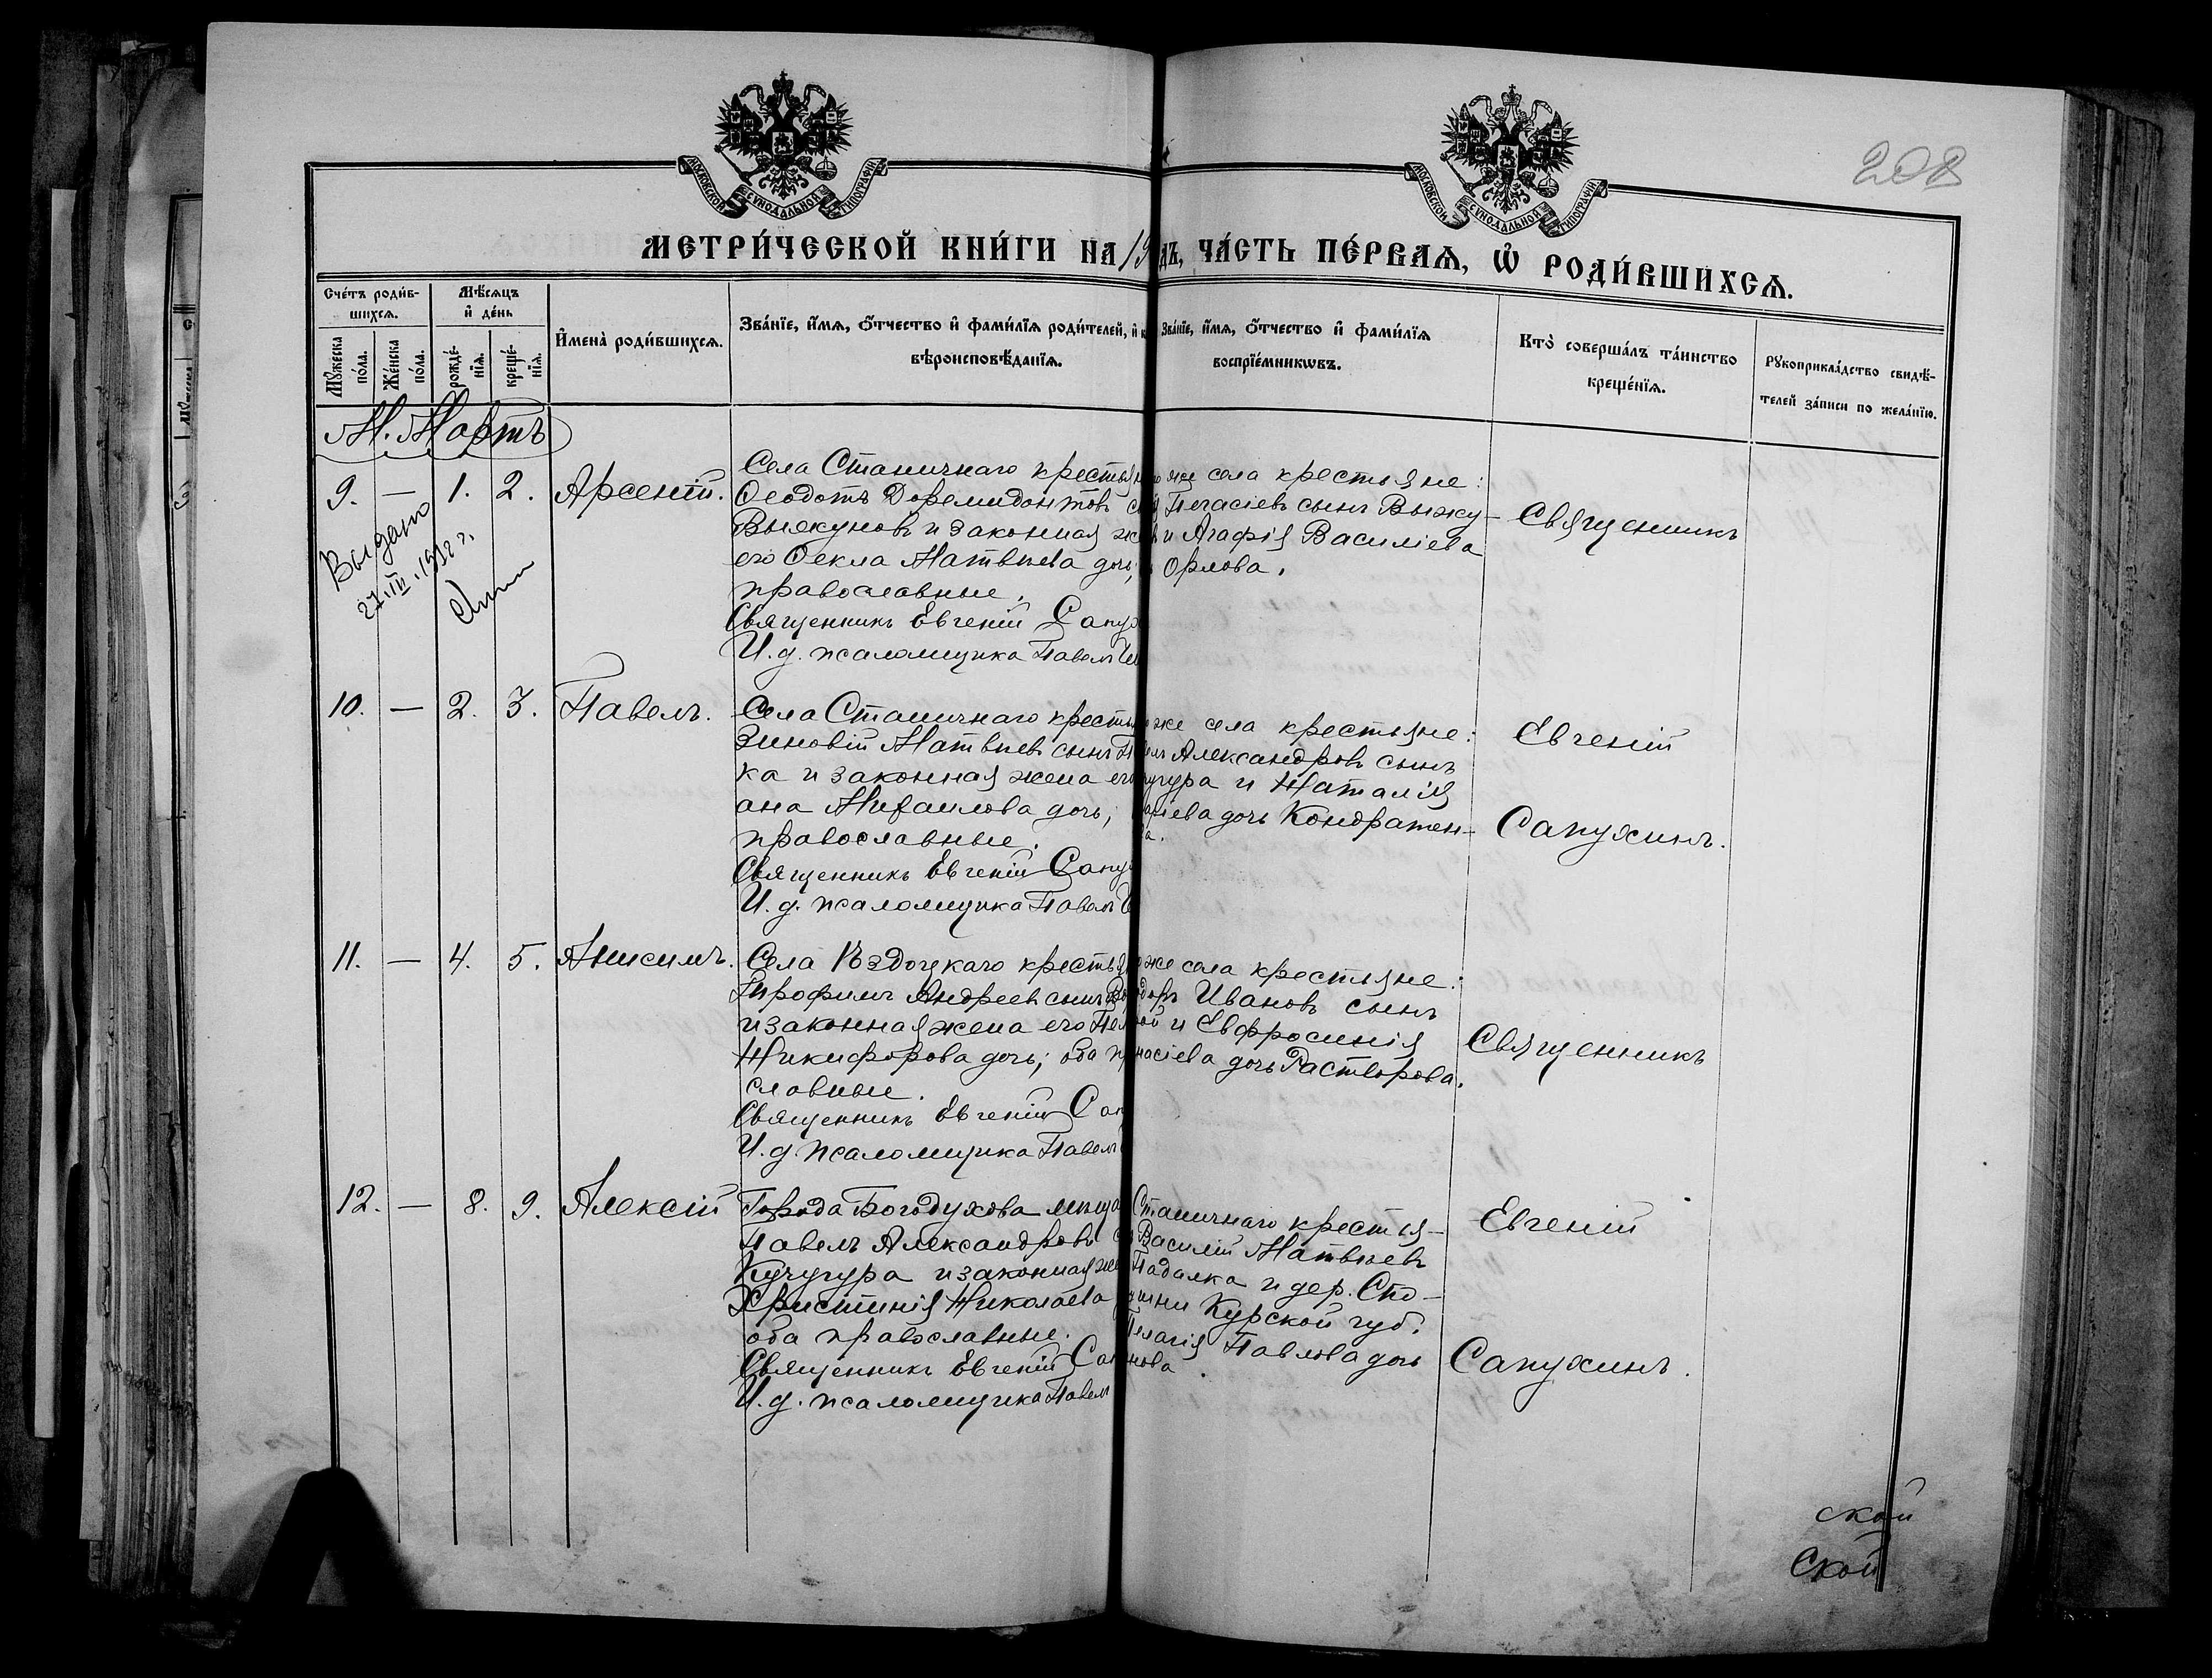 208
МОСКОВСКОЙ СѴНОДАЛЬНОЙ ТИПОГРАФІИ
МОСКОВСКОЙ СѴНОДАЛЬНОЙ ТИПОГРАФІИ
МЕТРИ́ЧЕСКОЙ КНИ́ГИ НА 19
ДЪ, ЧА́СТЬ ПЕ́РВАѦ, Ѡ҆ РОДИ́ВШИХСѦ.
Сче́тъ роди́в-
шихсѧ.
Мꙋ́жеска по́ла.
Же́нска по́ла.
Мѣ́сѧцъ
и҆ де́нь
рожде́-
нїѧ.
креще́-
нїѧ.
И҆мена̀ роди́вшихсѧ.
Зва́нїе, и҆́мѧ, ѻ҆́тчество и҆ фами́лїѧ роди́телей, и҆
вѣроисповѣ́данїѧ.
Зва́нїе, и҆́мѧ, ѻ҆́тчество и҆ фами́лїѧ
воспрїе́мникѡвъ.
Кто̀ соверша́лъ та́инство
креще́нїѧ.
Рꙋкоприкла́дство свидѣ́-
телей за́писи по жела́нїю.
М. Мартъ
9. — 1. 2. Арсеній.
Выдано
27.III.1932 г.
Села Станичнаго крестья
Ѳеодотъ Доремидонтов
Выжкунов и законная ж
его Ѳекла Матвѣева дочь,
православные.
Священникъ Евгеній Сапух
И. д. псаломщика Павелъ
же села крестьяне:
Пегасіев сынъ Выжку-
и Агафія Василіева
Орлова.
Священникъ
10. — 2. 3. Павелъ.
Села Станичнаго кресть
Зиновій Матвѣев сынъ
ка и законная жена его
ана Михаилова дочь;
православные.
Священникъ Евгеній Сапу
И. д. псаломщика Павелъ
же села крестьяне:
Александровъ сынъ
чугура и Наталія
сіева дочь Кондратен-
ва.
Евгеній
Сапухинъ.
11. — 4. 5. Анисимъ.
Села Къздоцкаго крестья
Трофимъ Андреев сынъ
и законная жена его Пел
Никифорова дочь; оба п
славные.
Священникъ Евгеній Сап
И. д. псаломщика Павелъ
же села крестьяне:
Иванов сынъ
ой и Евфросинія
насіева дочь Растворова.
Священникъ
12. — 8. 9. Алексій
Города Богодухова мѣща
Павелъ Александровъ
Кучугура и законная же
Христинія Николаева
оба православные.
Священникъ Евгеній Сап
И. д. псаломщика Павелъ
Станичнаго крестья-
Василій Матвѣевъ
Падалка и дер. Сто-
Курской губ.
Пелагія Павлова дочь
нова
Евгеній
Сапухинъ.
ской
Ской